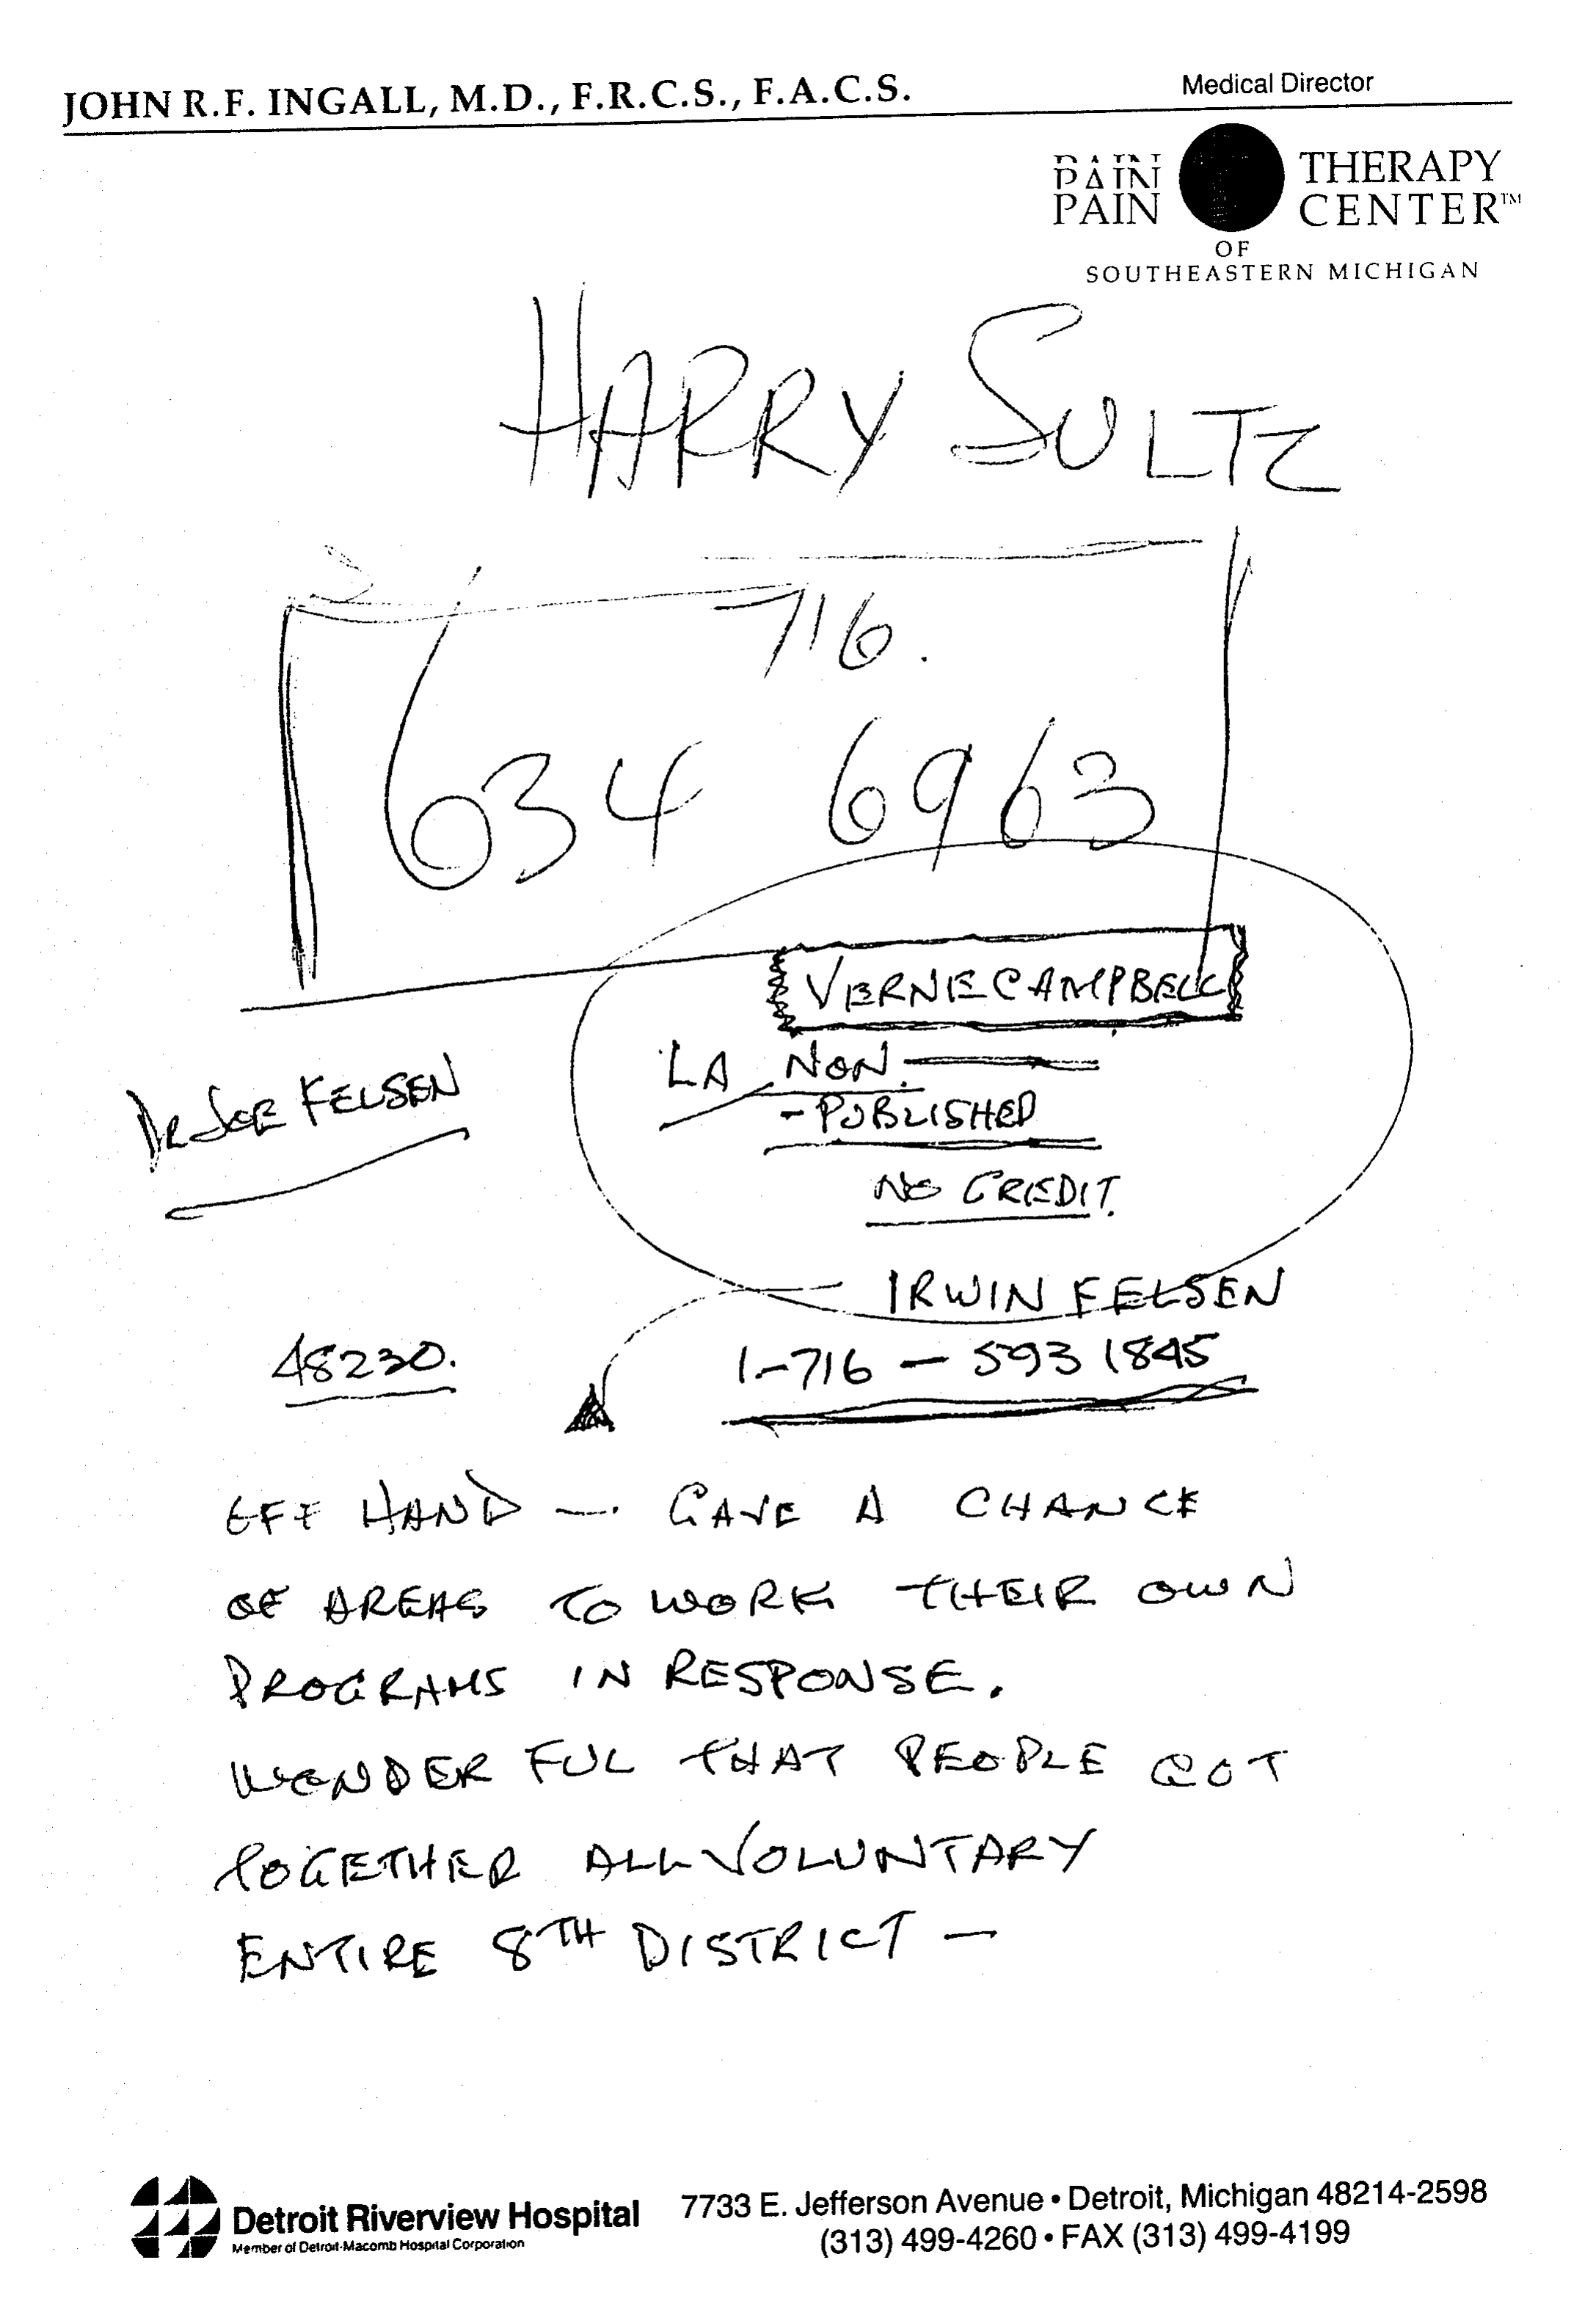 JOHN R.F. INGALL, M.D., F.R.C.S., F.A.C.S.
Medical Director
PAIN
PAIN
PAIN
THERAPY
CENTER™
OF
SOUTHEASTERN MICHIGAN
HARRY SULTZ
716.
634 6963
VERNE CAMPBELL
LA NON
- PUBLISHED
NO CREDIT.
DR JOE FELSEN
IRWIN FELSEN
48230.
1-716 - 593 1845
OFF HAND - GAVE A CHANCE
OF AREAS TO WORK THEIR OWN
PROGRAMS IN RESPONSE.
WONDERFUL THAT PEOPLE GOT
TOGETHER ALL VOLUNTARY
ENTIRE 8TH DISTRICT -
Detroit Riverview Hospital
Member of Detroit-Macomb Hospital Corporation
7733 E. Jefferson Avenue • Detroit, Michigan 48214-2598
(313) 499-4260 • FAX (313) 499-4199